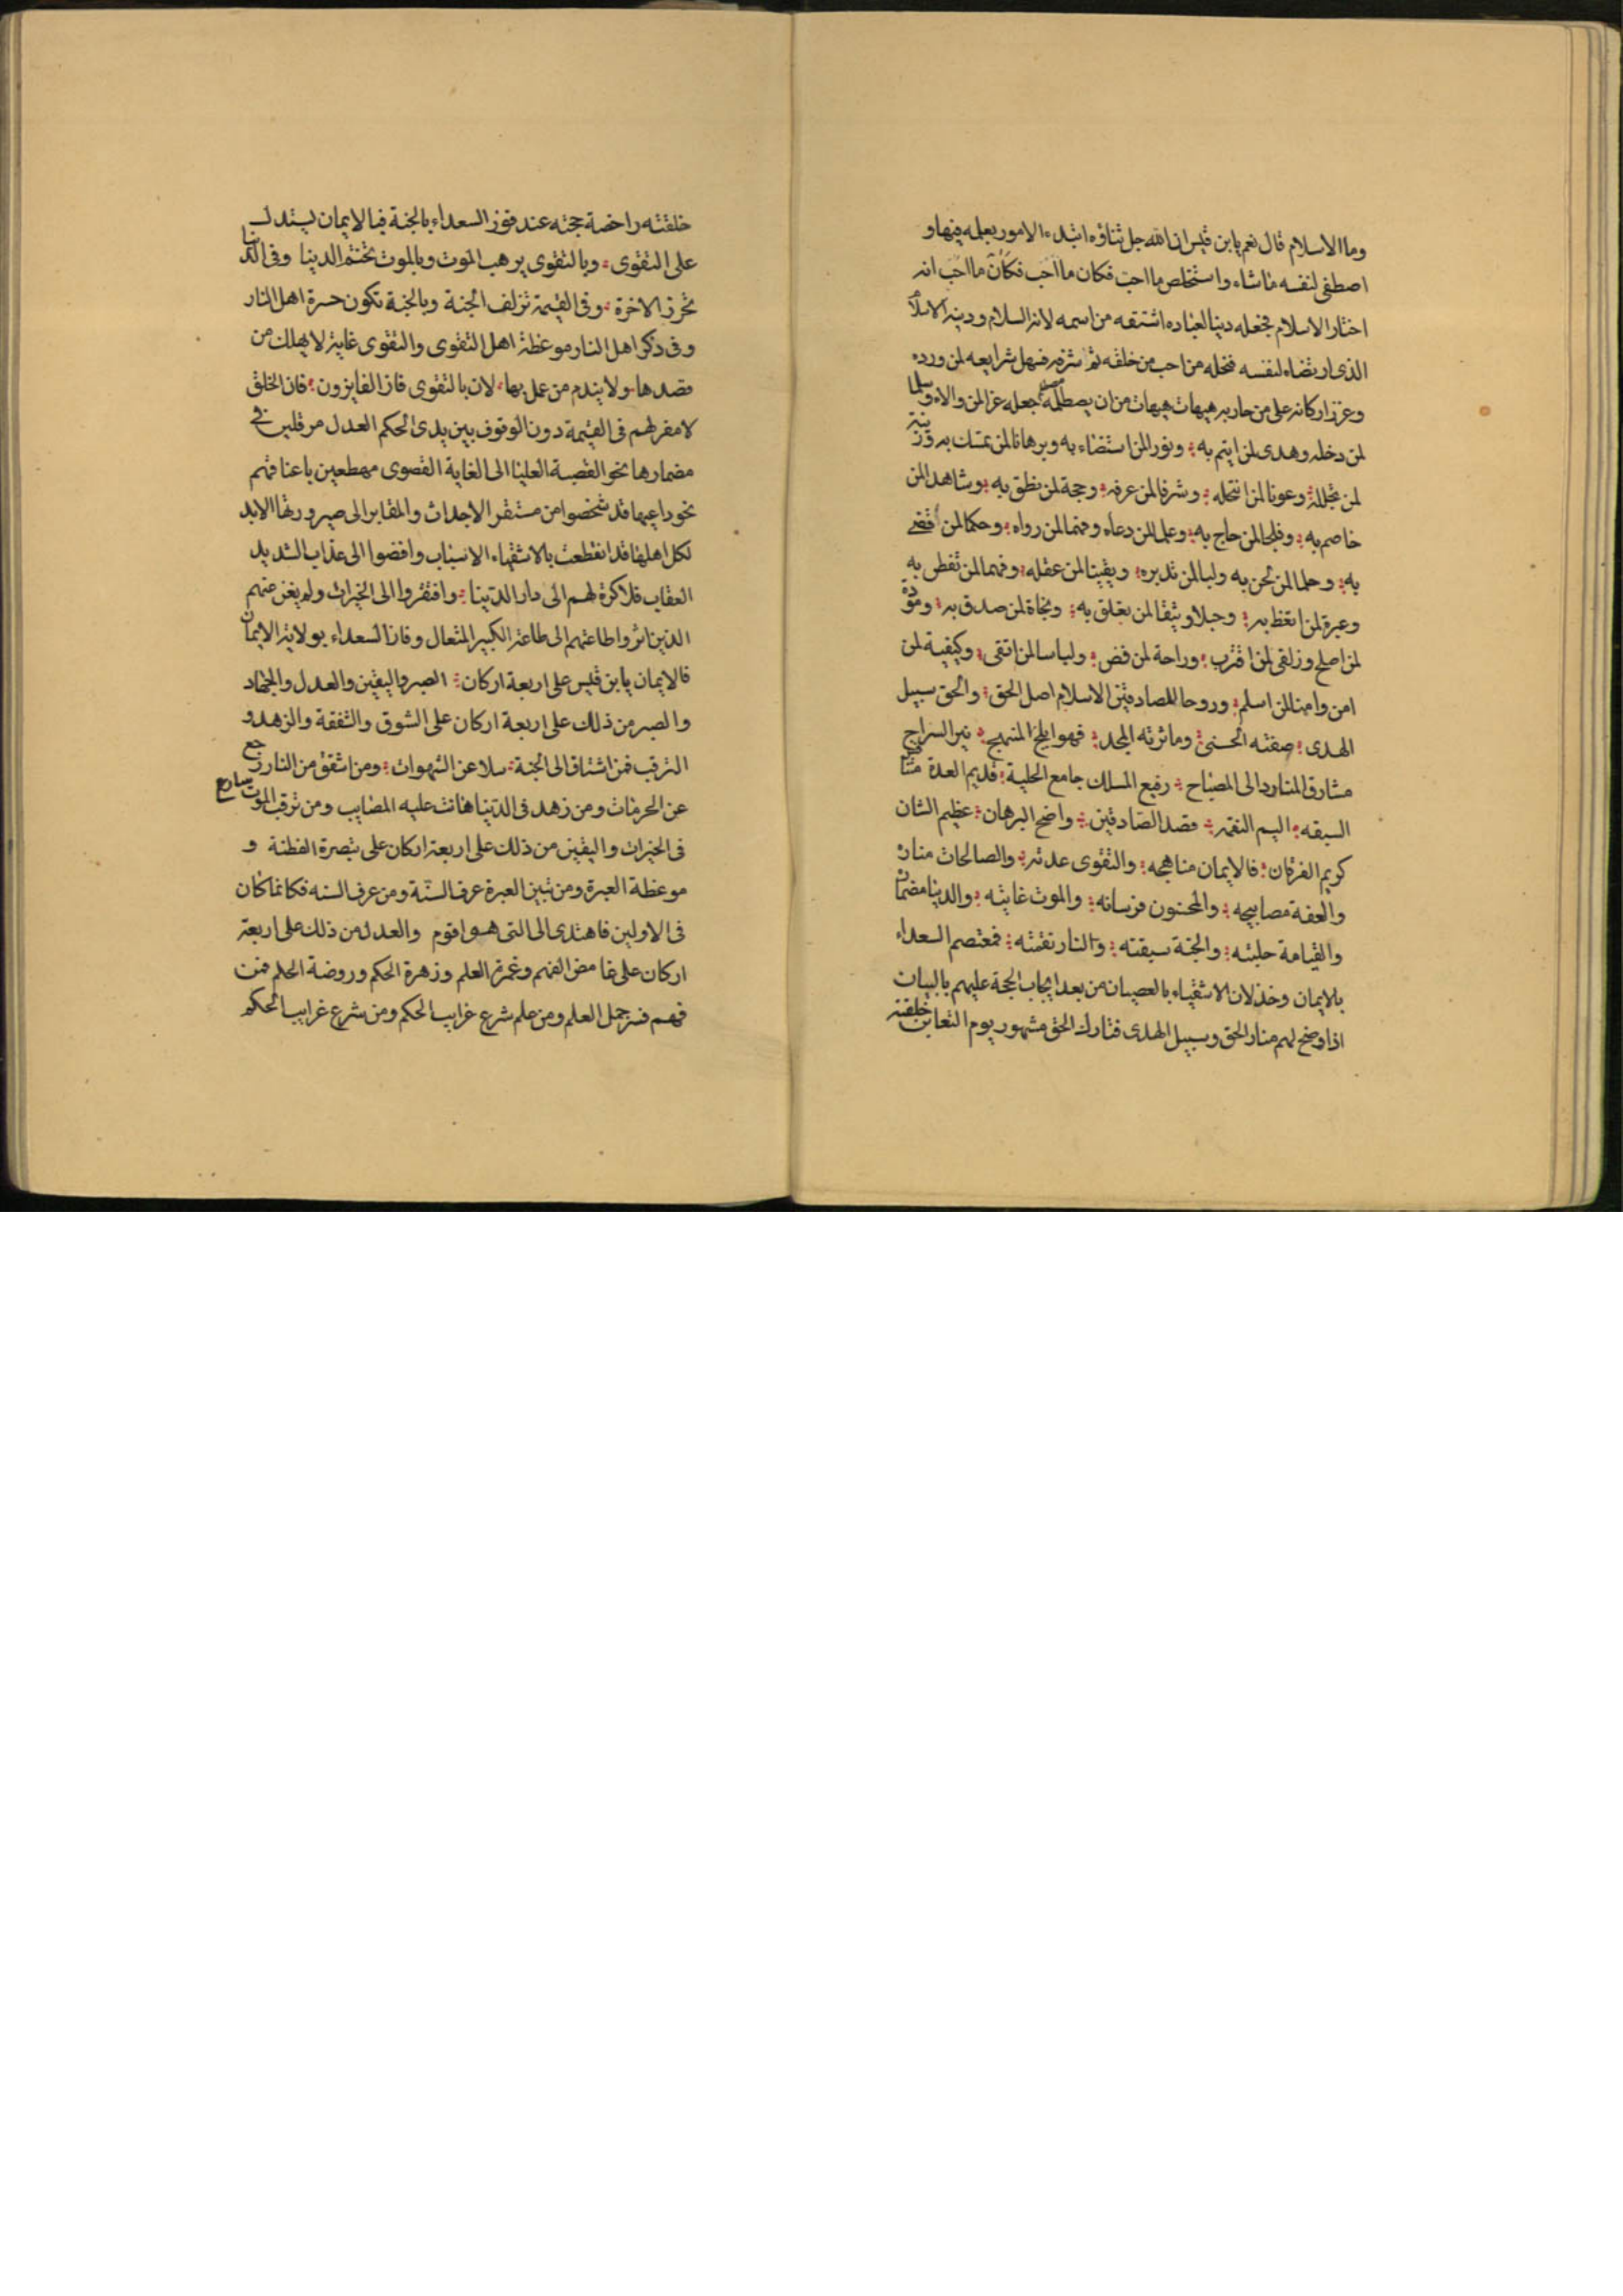 وما الاسلام قال نعم يابن قيس ان الله جل ثناؤه ابتدء الامور بعلمه فيها و
اصطفى لنفسه ما شاء واستخلص ما احب فكان ما احب فكان ما احب انه
اختار الاسلام فجعله دينا لعباده اشتقه من اسمه لانه السلام ودينه الاسلام
الذى ارتضاه لنفسه فنحله من احب من خلقه ثم شرفه فسهل شرايعه لمن ورده
وعزز اركانه على من حاربه هيهات هيهات من ان يصطلمه مصطلم جعله عزا لمن والاه وسلما
لمن دخله وهدى لمن ايتم به ونورا لمن استضاء به وبرهانا لمن تمسك به وزينة
لمن تجلله وعونا لمن انتحله وشرفا لمن عرفه وحجة لمن نطق به وشاهدا لمن
خاصم به وفلجا لمن حاج به وعلما لمن دعاه وفهما لمن رواه وحكما لمن قضى
به وحلما لمن لحن به ولبا لمن تدبره ويقينا لمن عقله وفهما لمن تفطن به
وعبرة لمن اتعظ به وحبلا وثيقا لمن تعلق به ونجاة لمن صدق به ومودة
لمن اصلح وزلفى لمن اقترب وراحة لمن فض ولباسا لمن اتقى وكيفية لمن
امن وامنا لمن اسلم وروحا للصادقين الاسلام اصل الحق والحق سبيل
الهدى صفته الحسنى وماثرته المجد فهو ابلج المنهج نير السراج
مشارق المنار دالى المصباح رفيع المسلك جامع الحلبة قديم العدة متنافس
السبقه اليم النقمه قصد الصادقين واضح البرهان عظيم الشان
كريم الفرقان فالايمان مناهجه والتقوى عدته والصالحات مناره
والعفة مصابيحه والمحنون فرسانه والموت غايته والدنيا مضماره
والقيامة حلبته والجنة سبقته والنار نقمته فمعتصم السعداء
بالايمان وخذلان الاشقياء بالعصيان من بعد ايجاب الحجة عليهم بالبيات
اذا وضح لهم منار الحق وسبيل الهدى فتارك الحق مشهور يوم التغابن خلقته
خلقته داحضة حجته عند فوز السعداء بالجنة فبالايمان يستدل
على التقوى وبالتقوى يرهب الموت وبالموت تختتم الدنيا وفى الدنيا
تحرز الاخرة وفى القيمة تزلف الجنة وبالجنة تكون حسرة اهل النار
وفى ذكر اهل النار موعظة اهل التقوى والتقوى غاية لا يهلك من
قصدها ولا يندم من عمل بها لان بالتقوى فاز الفايزون فان الخلق
لا مفر لهم فى القيمة دون الوقوف بين يدى الحكم العدل مرقلين فى
مضمارها نحو القصبة العليا الى الغاية القصوى مهطعين باعناقهم
نحو داعيها قد شخصوا من مستقر الاجداث والمقابر الى صيرورتها الابد
لكل اهلها قد انقطعت بالاشقياء الاسباب وافضوا الى عذاب الشديد
العقاب فلا كرة لهم الى دار الدنيا وافتقروا الى الخيرات ولم يغن عنهم
الذين اثروا طاعتهم الى طاعة الكبير المتعال وفاز السعداء بولاية الايمان
فالايمان يابن قيس على اربعة اركان الصبر واليقين والعدل والجهاد
والصبر من ذلك على اربعة اركان على الشوق والشفقة والزهد و
الترقب فمن اشتاق الى الجنة سلا عن الشهوات ومن اشفق من النار رجع
عن الحرمات ومن زهد فى الدنيا هانت عليه المصايب ومن ترقب الموت سارع
فى الخيرات واليقين من ذلك على اربعة اركان على تبصرة الفطنة و
موعظة العبرة ومن تبين العبرة عرف السنة ومن عرف السنه فكانما كان
فى الاولين فاهتدى الى التى هو اقوم والعدل من ذلك على اربعة
اركان على غامض الفهم وغمرة العلم وزهرة الحكم وروضة الحلم فمن
فهم فسر جمل العلم ومن علم شرع غرايب الحكم ومن شرع غرايب الحكم